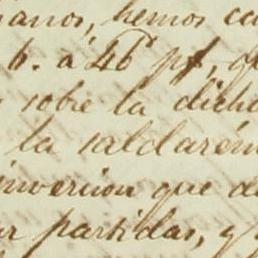 manos, hemos ca
6. á 46 pf, q
sobre la dich
la saldarém
inversion que d
ar partidas, y